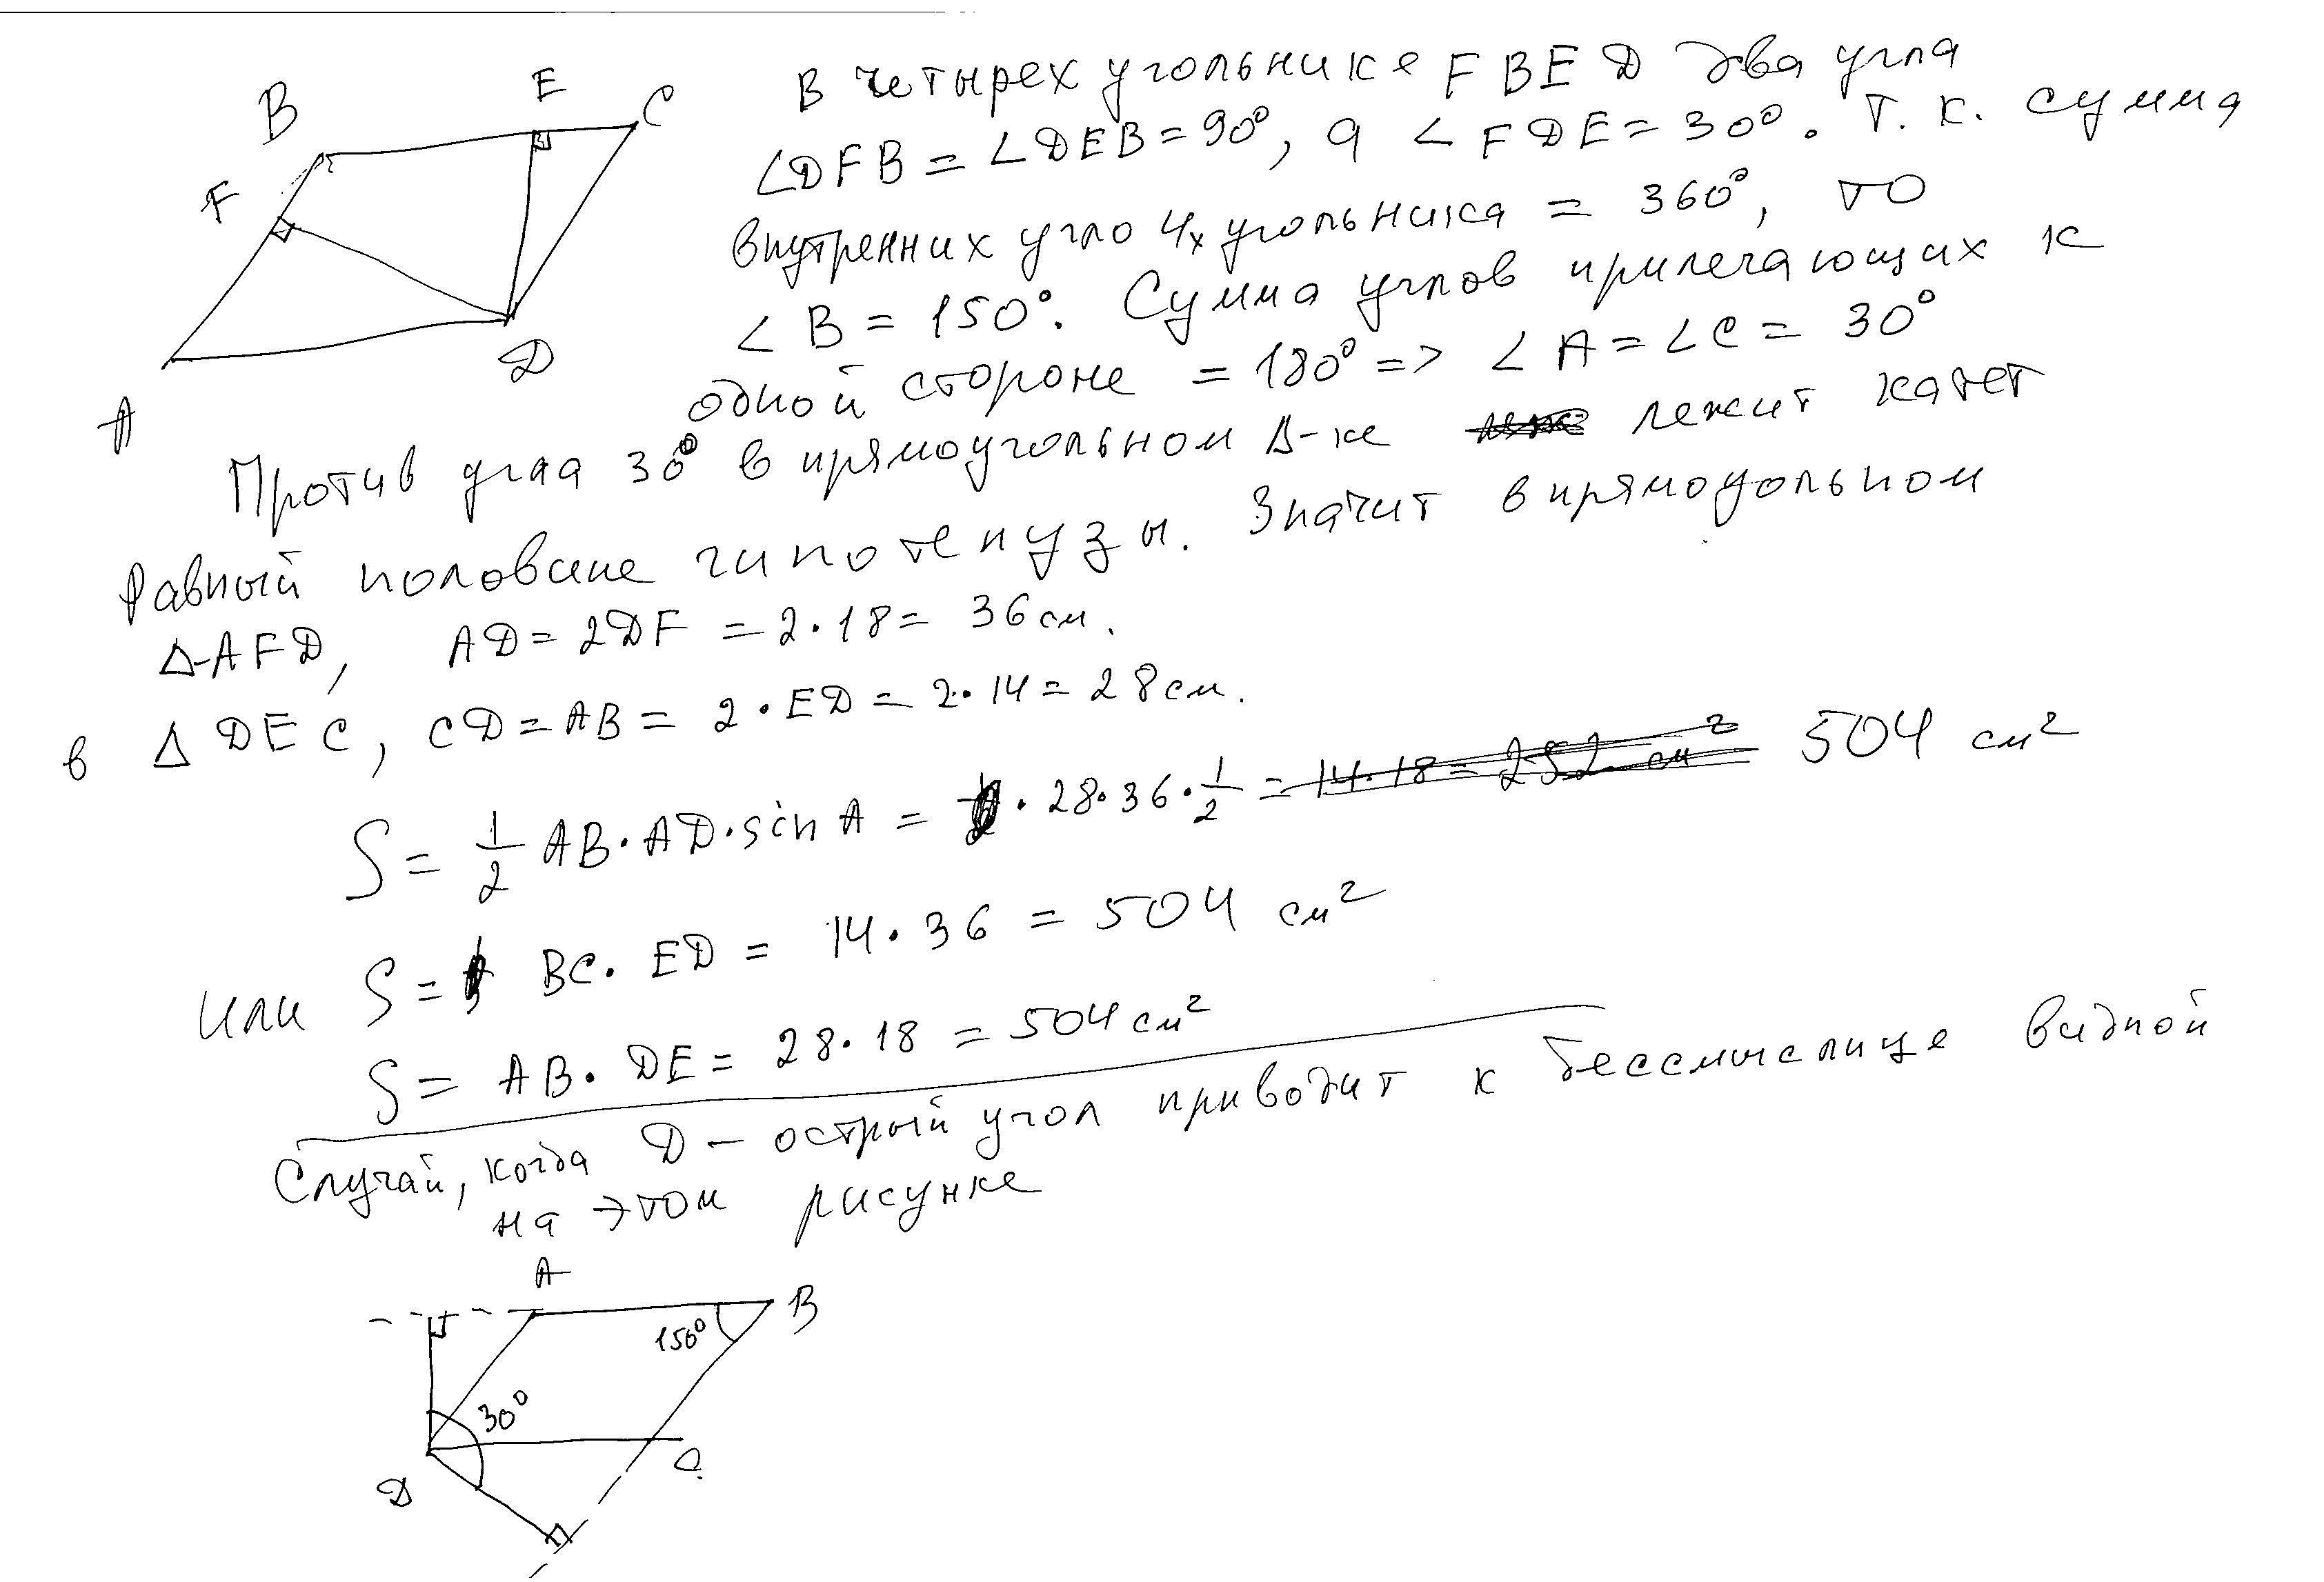 B E C
F
A D
В четырехугольнике FBED два угла
∠DFB = ∠DEB = 90°, а ∠FDE = 30°. Т. к. сумма
внутренних угло 4х угольника = 360°, то
∠B = 150°. Сумма углов прилегающих к
одной стороне = 180° => ∠A = ∠C = 30°
Против угла 30° в прямоугольном Δ-ке лежит катет
равный половине гипотенузы. Значит в прямоуольном
Δ-AFD, AD = 2DF = 2·18 = 36 см.
в Δ DEC, CD = AB = 2·ED = 2·14 = 28 см.
S = 1/2 AB·AD·sin A = · 28·36·1/2 = 14·18 = 252 см² 504 см²
или S = BC·ED = 14·36 = 504 см²
S = AB·DE = 28·18 = 504 см²
Случай, когда D – острый угол приводит к бессмыслице видной
на этом рисунке
A
B
150°
30°
D
C